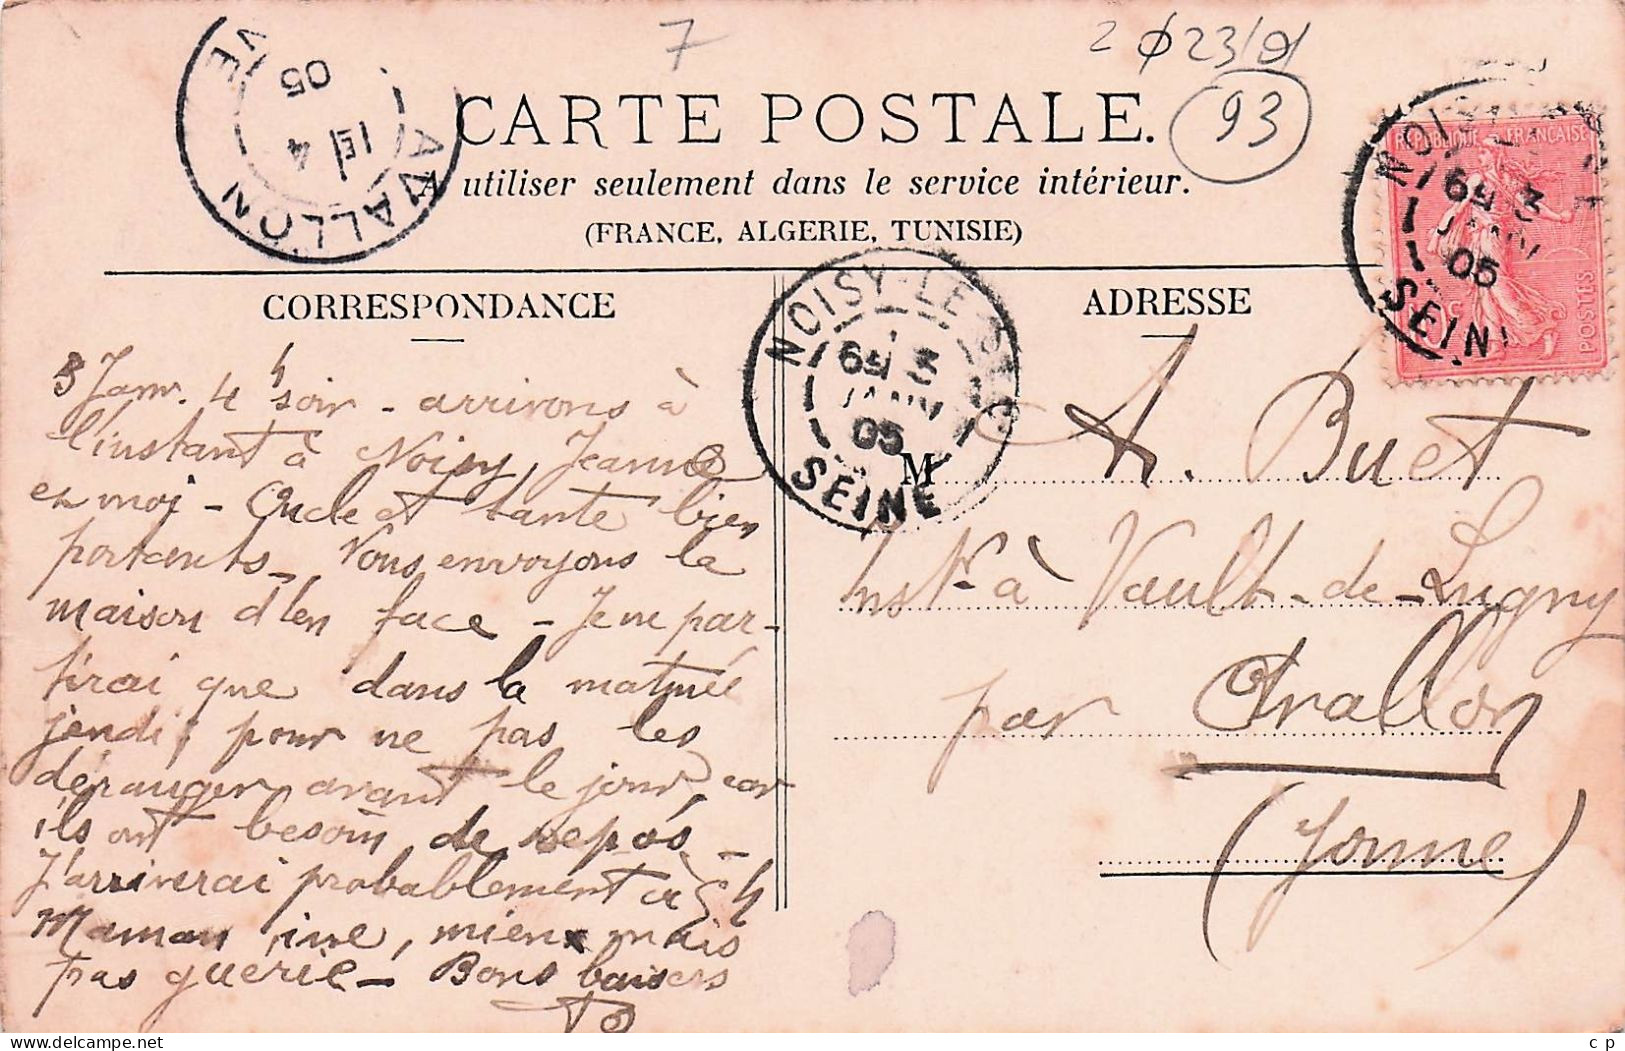 7
2 φ 23/9/
93
CARTE POSTALE.
A utiliser seulement dans le service intérieur.
(FRANCE, ALGERIE, TUNISIE)
AVALLON
1E 4
05
REPUBLIQUE FRANÇAISE
POSTES
10c
NOISY
6E 3
JANV
05
SEINE
NOISY-LE-SEC
6E 3
JANV
05
SEINE
CORRESPONDANCE
3 Janv. 4h soir - arrivons à
l'instant à Noisy, Jeanne
et moi - Oncle et tante bien
portants - Vous envoyons la
maison d'en face - Je ne par-
tirai que dans la matinée
jeudi, pour ne pas les
déranger avant le jour, car
ils ont besoin de repos -
J'arriverai probablement à 5h
Maman mieux mais
pas guérie - Bons baisers
ADRESSE
M A. Buet
Instr à Vault-de-Lugny
par Avallon
(Yonne)
c p